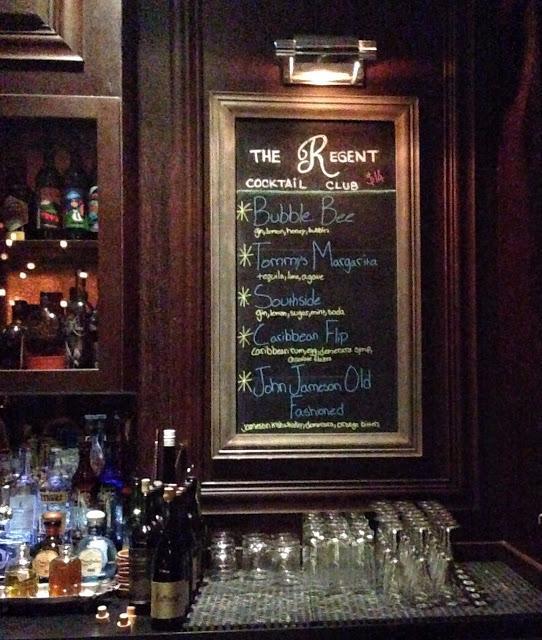 THE REGENT
COCKTAIL CLUB
* Bubble Bee
gin, lemon, honey, bubbles
* Tommy's Margarita
tequila, lime, agave
* Southside
gin, lemon, sugar, mint, soda
* Caribbean Flip
caribbean rum, egg, demerara syrup,
* John Jameson Old
Fashioned
jameson irish whiskey, demerara, orange bitters